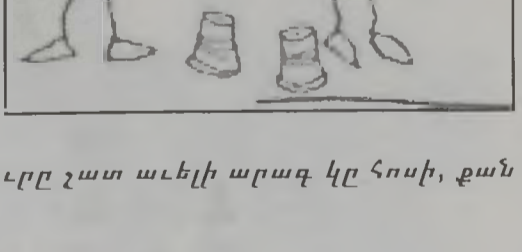 ւրը շատ աւելի արագ կը հոսի, քան